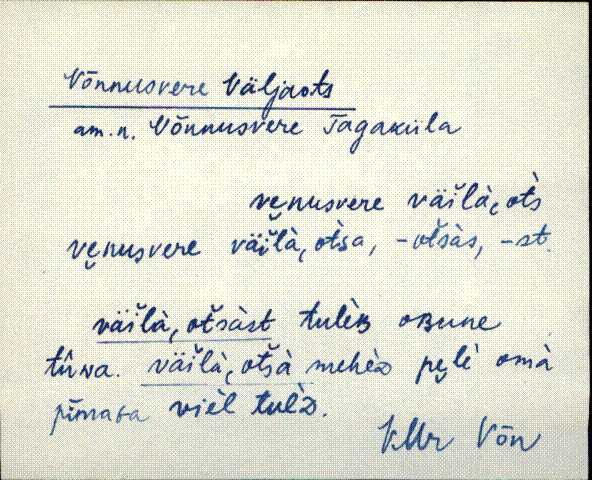 Võnnusvere Väljaots
am. n. Võnnusvere Tagaküla
ve̮nusvere väi̮là, ot̀s
ve̮nusvere väi̮là, ot̀sa, -ot̀sàs, -st.
väi̮là, ot̀sàst tulèʙ oʙune
väi̮là, ot̀sà mehèᴅ pe̮lè omà
vièl tulèᴅ.
Võn